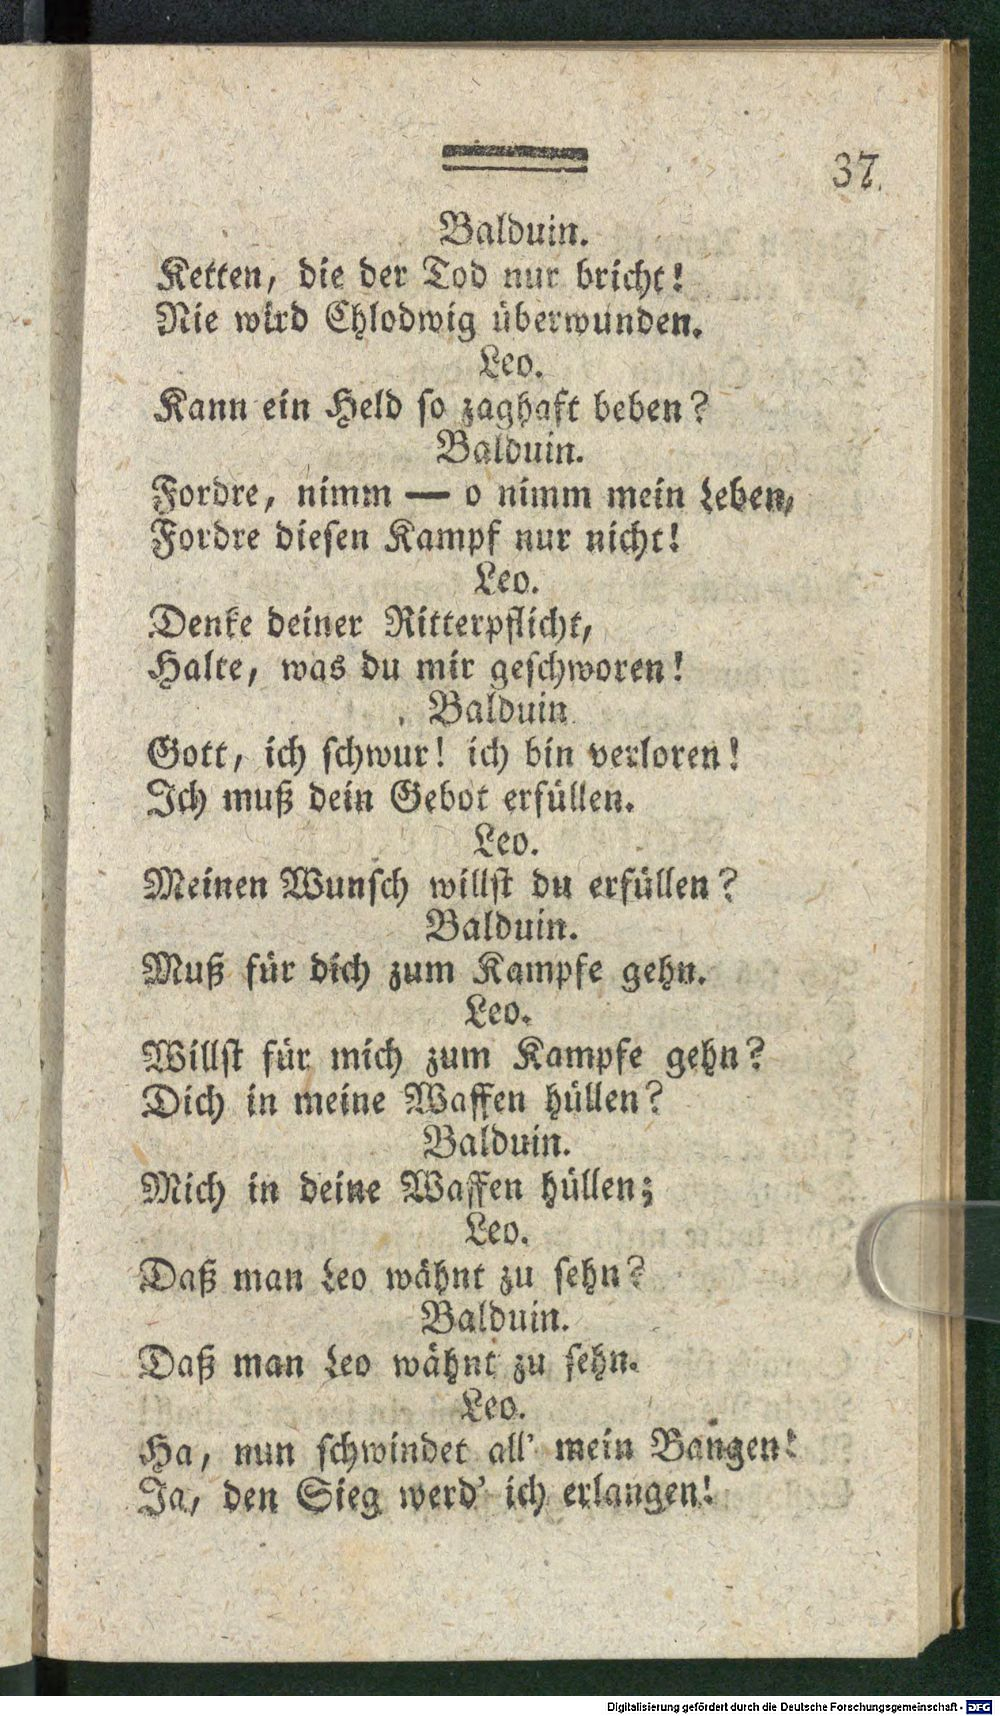 37.
Balduin.
Ketten, die der Tod nur bricht!
Nie wird Chlodwig überwunden.
Leo.
Kann ein Held so zaghaft beben?
Balduin.
Fordre, nimm — o nimm mein Leben,
Fordre diesen Kampf nur nicht!
Leo.
Denke deiner Ritterpflicht,
Halte, was du mir geschworen!
Balduin
Gott, ich schwur! ich bin verloren!
Ich muß dein Gebot erfüllen.
Leo.
Meinen Wunsch willst du erfüllen?
Balduin.
Muß für dich zum Kampfe gehn.
Leo.
Willst für mich zum Kampfe gehn?
Dich in meine Waffen hüllen?
Balduin.
Mich in deine Waffen hüllen;
Leo.
Daß man Leo wähnt zu sehn?
Balduin.
Daß man Leo wähnt zu sehn.
Leo.
Ha, nun schwindet all' mein Bangen!
Ja, den Sieg werd' ich erlangen!
Digitalisierung gefördert durch die Deutsche Forschungsgemeinschaft - DFG